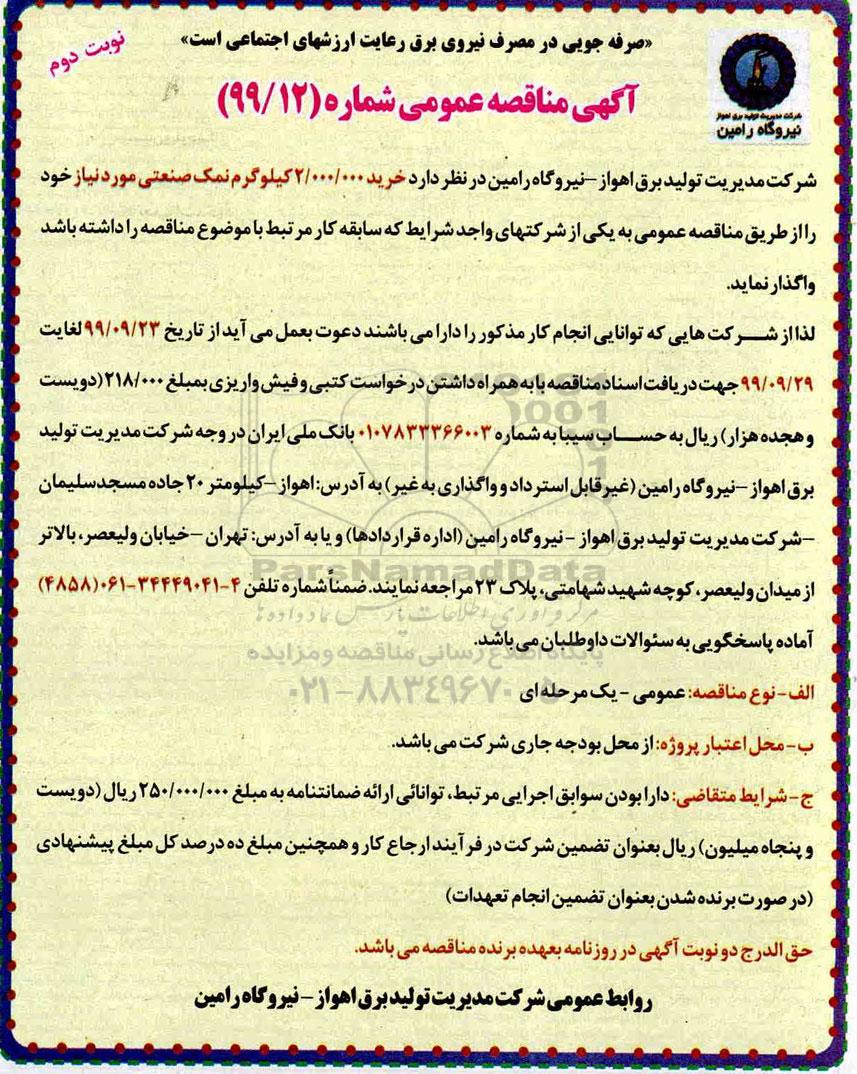 «صرفه جویی در مصرف نیروی برق رعایت ارزشهای اجتماعی است»
نوبت دوم
آگهی مناقصه عمومی شماره (۹۹/۱۲)
شرکت مدیریت تولید برق اهواز
نیروگاه رامین
شرکت مدیریت تولید برق اهواز –نیروگاه رامین در نظر دارد خرید ۲/۰۰۰/۰۰۰ کیلوگرم نمک صنعتی مورد نیاز خود
را از طریق مناقصه عمومی به یکی از شرکتهای واجد شرایط که سابقه کار مرتبط با موضوع مناقصه را داشته باشد
واگذار نماید.
لذا از شرکت هایی که توانایی انجام کار مذکور را دارا می باشند دعوت بعمل می آید از تاریخ ۹۹/۰۹/۲۳ لغایت
۹۹/۰۹/۲۹ جهت دریافت اسناد مناقصه با به همراه داشتن درخواست کتبی و فیش واریزی بمبلغ ۲۱۸/۰۰۰ (دویست
و هجده هزار) ریال به حساب سیبا به شماره ۰۱۰۷۸۳۳۳۶۶۰۰۳ بانک ملی ایران در وجه شرکت مدیریت تولید
برق اهواز –نیروگاه رامین (غیر قابل استرداد و واگذاری به غیر) به آدرس: اهواز –کیلومتر ۲۰ جاده مسجدسلیمان
–شرکت مدیریت تولید برق اهواز – نیروگاه رامین (اداره قراردادها) و یا به آدرس: تهران –خیابان ولیعصر، بالاتر
از میدان ولیعصر، کوچه شهید شهامتی، پلاک ۲۳ مراجعه نمایند. ضمناً شماره تلفن ۴-۰۶۱-۳۴۴۴۹۰۴۱ (۴۸۵۸)
آماده پاسخگویی به سئوالات داوطلبان می باشد.
الف- نوع مناقصه: عمومی - یک مرحله ای
ب- محل اعتبار پروژه: از محل بودجه جاری شرکت می باشد.
ج- شرایط متقاضی: دارا بودن سوابق اجرایی مرتبط، توانائی ارائه ضمانتنامه به مبلغ ۲۵۰/۰۰۰/۰۰۰ ریال (دویست
و پنجاه میلیون) ریال بعنوان تضمین شرکت در فرآیند ارجاع کار و همچنین مبلغ ده درصد کل مبلغ پیشنهادی
(در صورت برنده شدن بعنوان تضمین انجام تعهدات)
حق الدرج دو نوبت آگهی در روزنامه بعهده برنده مناقصه می باشد.
روابط عمومی شرکت مدیریت تولید برق اهواز – نیروگاه رامین
ParsNamadData
مرکز فرآوری اطلاعات پارس نماد داده ها
پایگاه اطلاع رسانی مناقصه و مزایده
۰۲۱-۸۸۳۴۹۶۷۰-۵